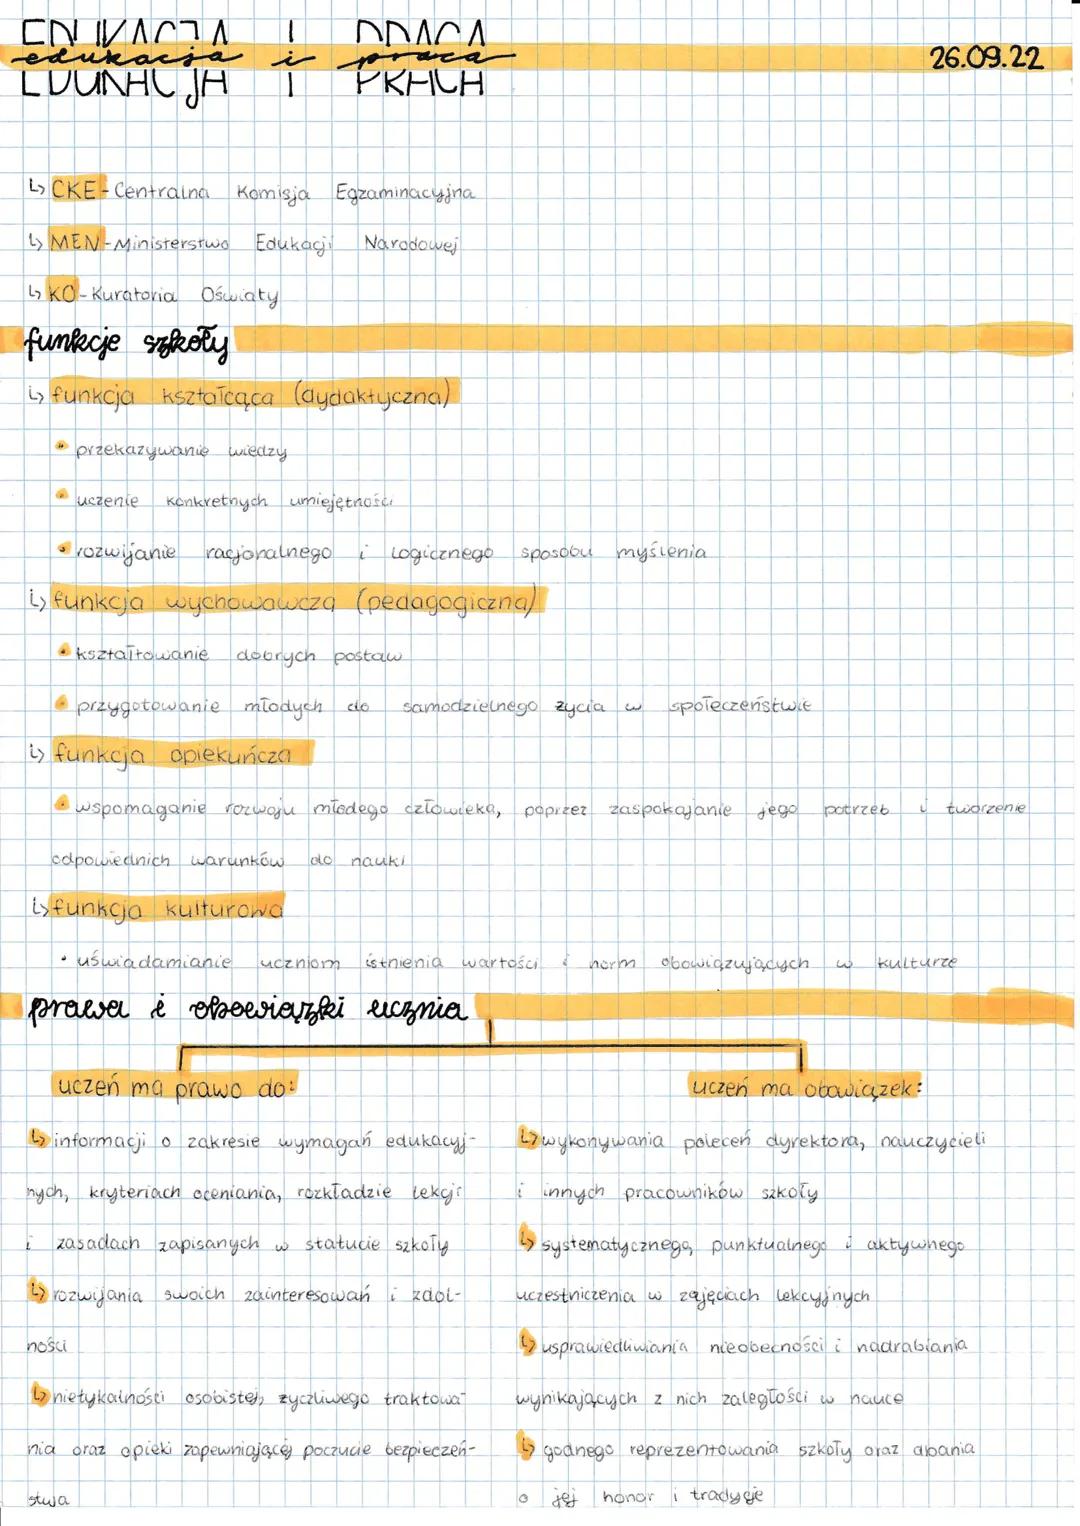 EDUKACJA I PRACA
edukacja i praca
26.09.22
↳ CKE - Centralna Komisja Egzaminacyjna
↳ MEN - Ministerstwo Edukacji Narodowej
↳ KO - Kuratoria Oświaty
funkcje szkoły
↳ funkcja kształcąca (dydaktyczna)
• przekazywanie wiedzy
• uczenie konkretnych umiejętności
• rozwijanie racjonalnego i logicznego sposobu myślenia
↳ funkcja wychowawcza (pedagogiczna)
• kształtowanie dobrych postaw
• przygotowanie młodych do samodzielnego życia w społeczeństwie
↳ funkcja opiekuńcza
• wspomaganie rozwoju młodego człowieka, poprzez zaspokajanie jego potrzeb i tworzenie
odpowiednich warunków do nauki
↳ funkcja kulturowa
• uświadamianie uczniom istnienia wartości i norm obowiązujących w kulturze
prawa i obowiązki ucznia
uczeń ma prawo do:
↳ informacji o zakresie wymagań edukacyj-
nych, kryteriach oceniania, rozkładzie lekcji
i zasadach zapisanych w statucie szkoły
↳ rozwijania swoich zainteresowań i zdol-
ności
↳ nietykalności osobistej, życzliwego traktowa-
nia oraz opieki zapewniającej poczucie bezpieczeń-
stwa
uczeń ma obowiązek:
↳ wykonywania poleceń dyrektora, nauczycieli
i innych pracowników szkoły
↳ systematycznego, punktualnego i aktywnego
uczestniczenia w zajęciach lekcyjnych
↳ usprawiedliwiania nieobecności i nadrabiania
wynikających z nich zaległości w nauce
↳ godnego reprezentowania szkoły oraz dbania
o jej honor i tradycje